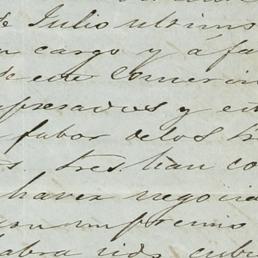 de Julio ultimo
cargo y á fa
de este comercio
presados y en
fabor delos tr
s. tres. han co
haver negocia
con un premio
abra sido cubi